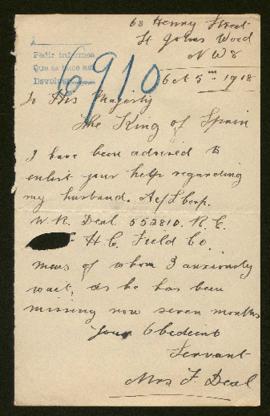 68 Henry Street
St Johns Wood
N W 8
Oct 5th 1918
A
Pedir informes
Que se hace así
Devolver
6910
To His Majesty
The King of Spain
I have been advised to
enlist your help regarding
my husband. A/L Corp.
W. R. Deal 552810. R. E.
H C Field Co.
news of whom I anxiously
wait, as he has been
missing now seven months
Your Obedient
Servant
Mrs F Deal